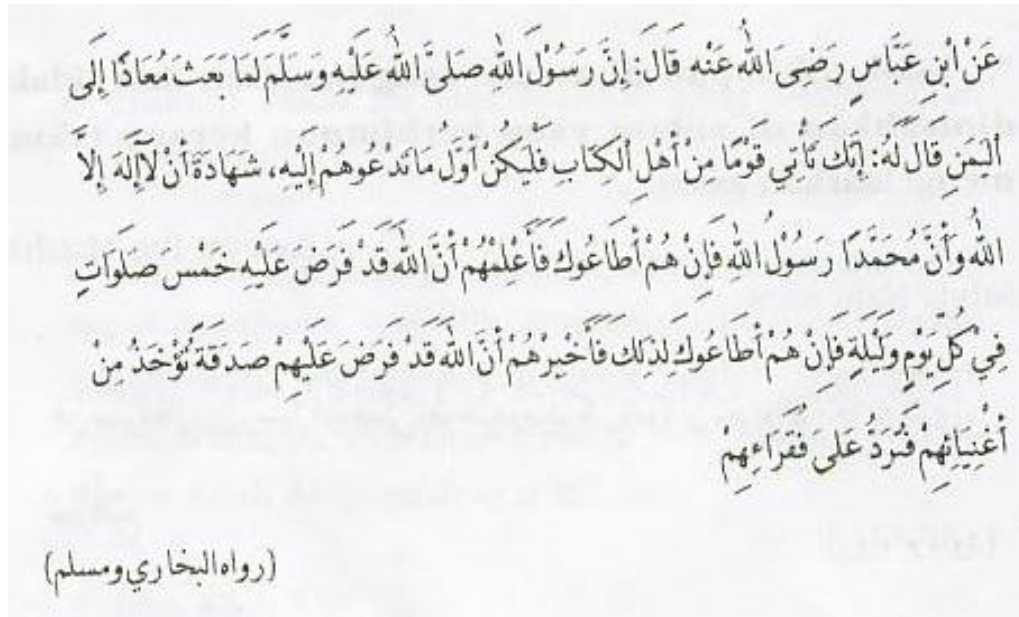 عَنْ ابْنِ عَبَّاسٍ رَضِىَ اللهُ عَنْه قَالَ: إِنَّ رَسُوْلَ اللهِ صَلىَّ اللهُ عَلَيْهِ وَسَلَّمَ لَمَا بَعَثَ مُعَاذًا إِلَى
الْيَمَنِ قَالَ لَهُ: إِنَّكَ تَأْتِي قَوْمًا مِنْ أَهْلِ الْكِتَابِ فَلْيَكُنْ أَوَّلَ مَا تَدْعُوْهُمْ إِلَيْهِ، شَهَادَةَ أَنْ لآَإِلَهَ إِلاَّ
اللهُ وَأَنَّ مُحَمَّدًا رَسُوْلُ اللهِ فَإِنْ هُمْ أَطَاعُوكَ فَأَعْلِمْهُمْ أَنَّ اللهَ قَدْ فَرَضَ عَلَيْهِ خَمْسَ صَلَوَاتٍ
فِيْ كُلِّ يَوْمٍ وَلَيْلَةٍ فَإِنْ هُمْ أَطَاعُوكَ لِذلِكَ فَأَخْبِرْهُمْ أَنَّ اللهَ قَدْ فَرَضَ عَلَيْهِمْ صَدَقَةً تُؤْخَذُ مِنْ
أَغْنِيَائِهِمْ فَتُرَدُّ عَلَى فُقَرَاءِهِمْ
(رواه البخاري ومسلم)